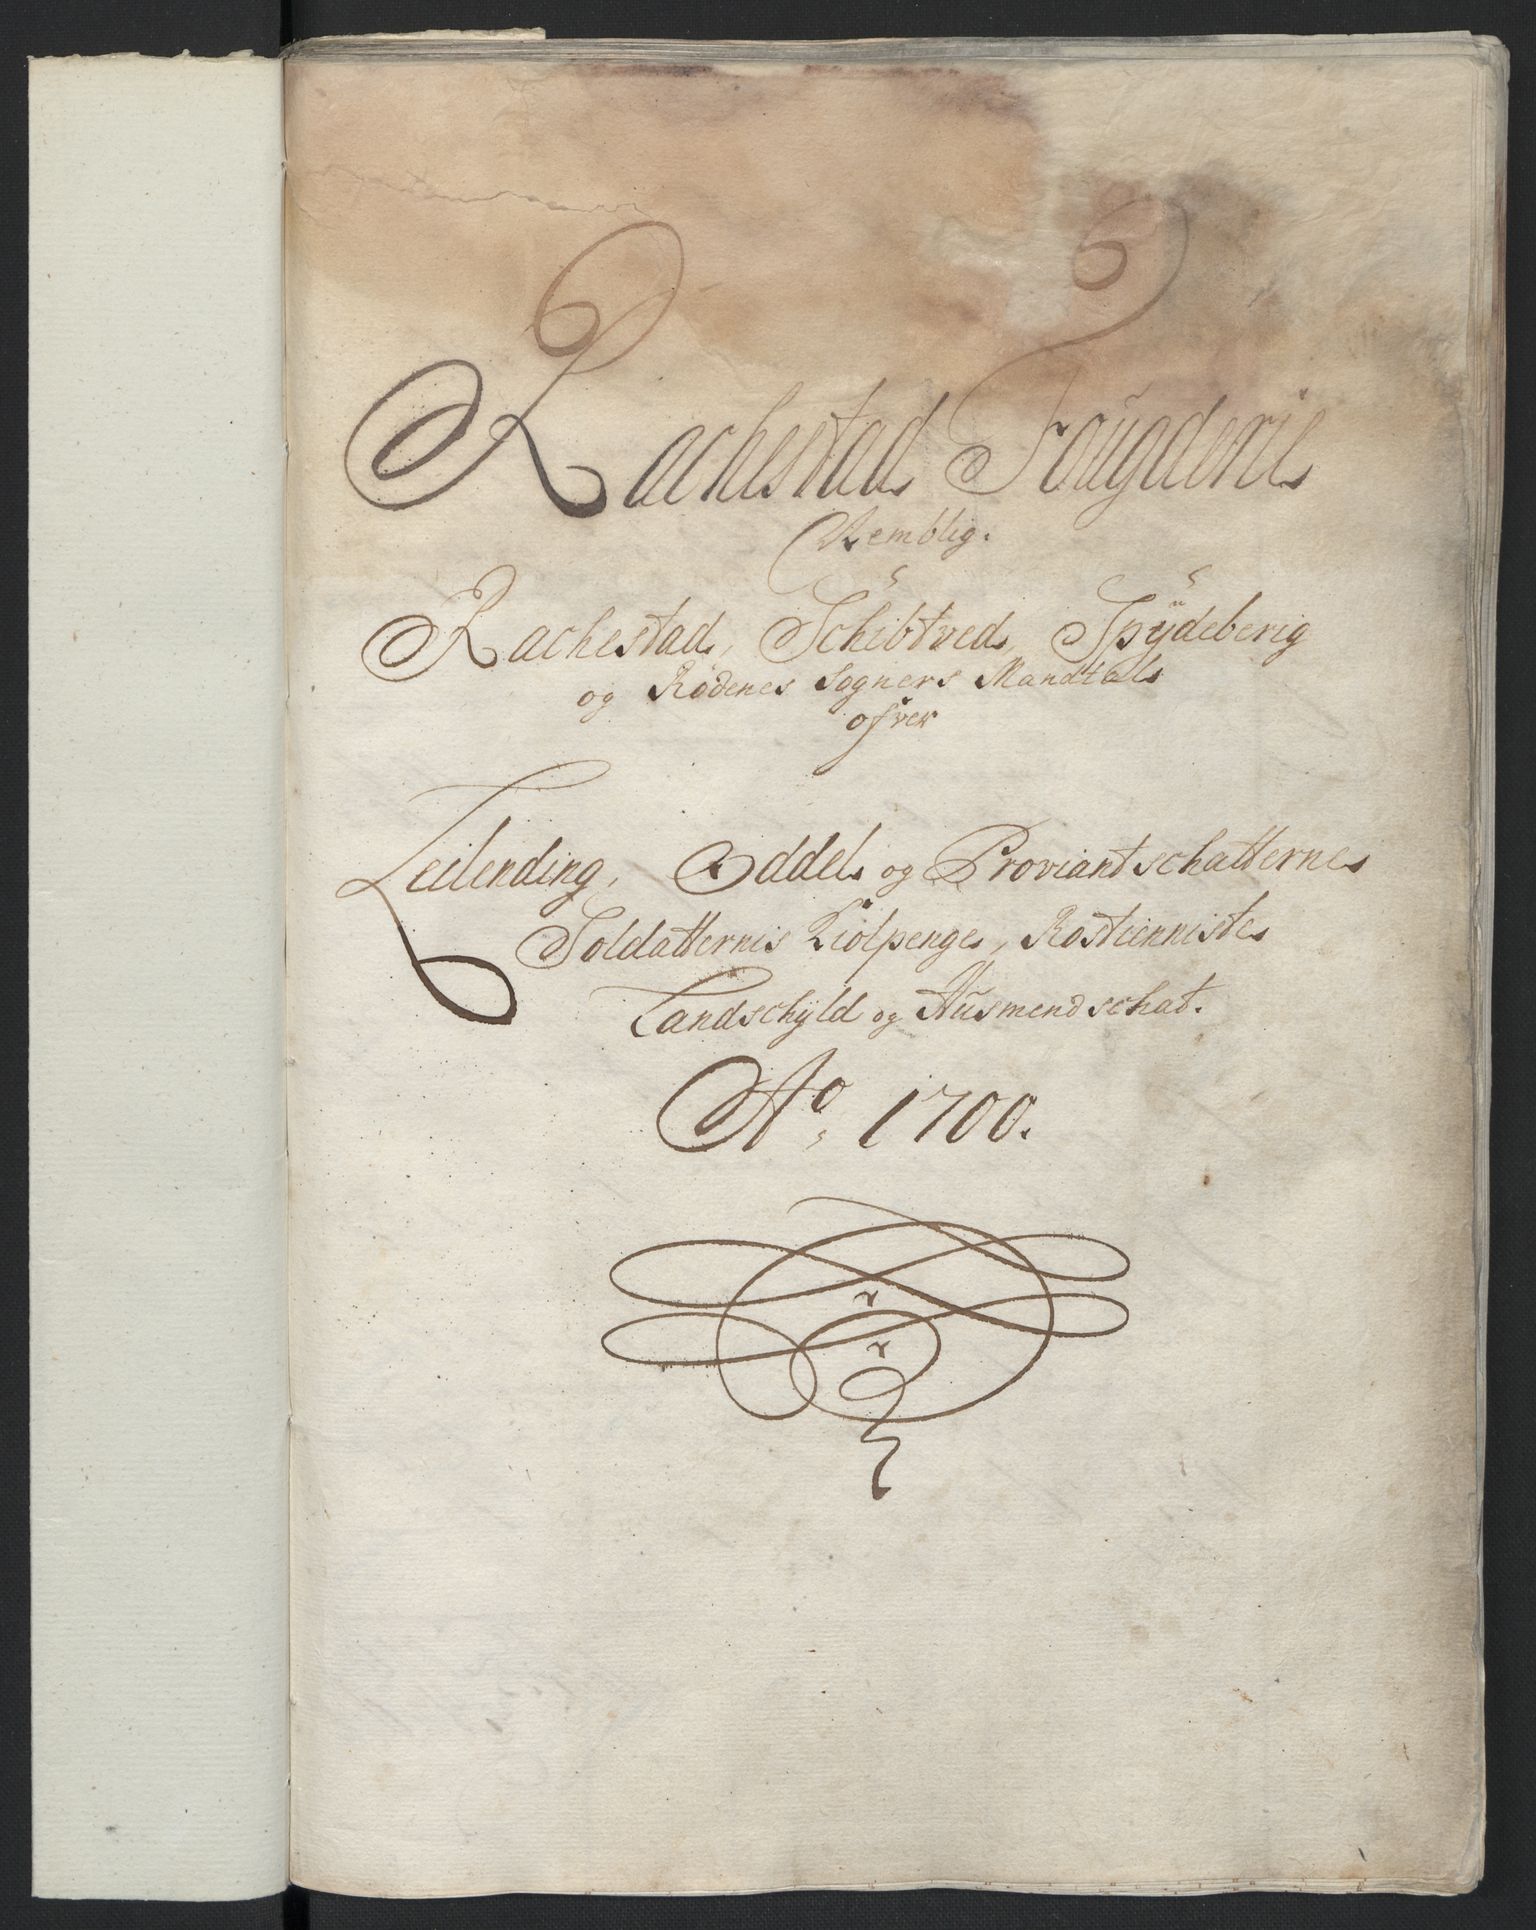 Rachestad Fougderie
Nemblig.
Rachestad, Schibtved, Spÿdeberig
og Rødenes Sogners Mandtal
ofver
Leilending, Oddel og Proviantschatterne
Soldatternis Kiolpenge, Rostienniste
Landschÿld og Husmendschat.
Ao. 1700.